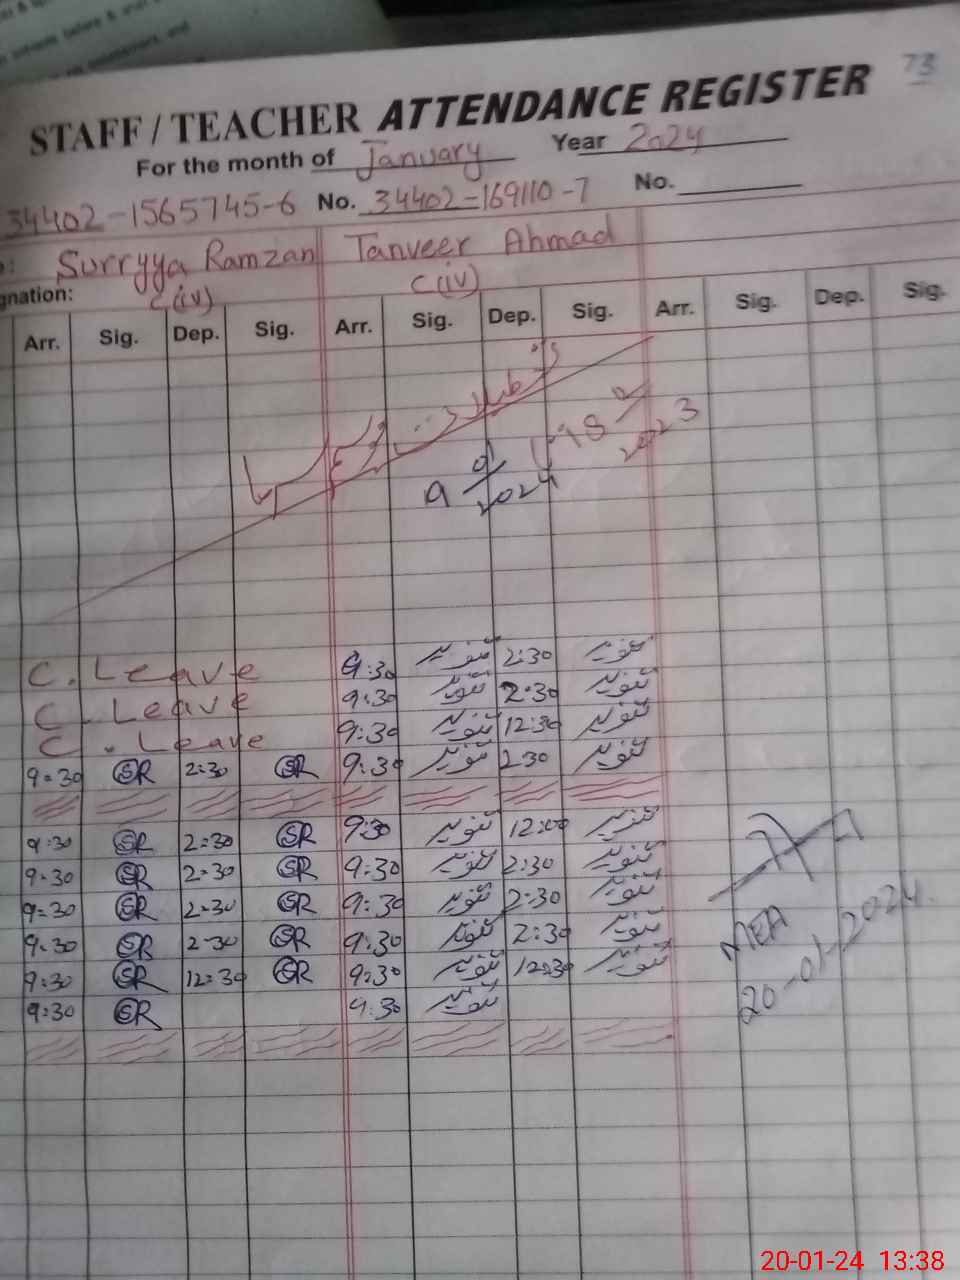 73
STAFF / TEACHER ATTENDANCE REGISTER
For the month of January Year 2024
34402-1565745-6 No. 34402-169110-7 No.
Surryya Ramzan Tanveer Ahmad
gnation: C(iv) C(iv)
Arr. Sig. Dep. Sig. Arr. Sig. Dep. Sig. Arr. Sig. Dep. Sig.
18
2023
9
2024
C. Leave 9:30 تنویر 2:30 تنویر
C. Leave 9:30 تنویر 2:30 تنویر
C. Leave 9:30 تنویر 12:30 تنویر
9:30 SR 2:30 SR 9:30 تنویر 2:30 تنویر
9:30 SR 2:30 SR 9:30 تنویر 12:00 تنویر
9:30 SR 2:30 SR 9:30 تنویر 2:30 تنویر
9:30 SR 2:30 SR 9:30 تنویر 2:30 تنویر
9:30 SR 2:30 SR 9:30 تنویر 2:30 تنویر
9:30 SR 12:30 SR 9:30 تنویر 12:30 تنویر
9:30 SR 9:30 تنویر
MEA
20-01-2024
20-01-24 13:38